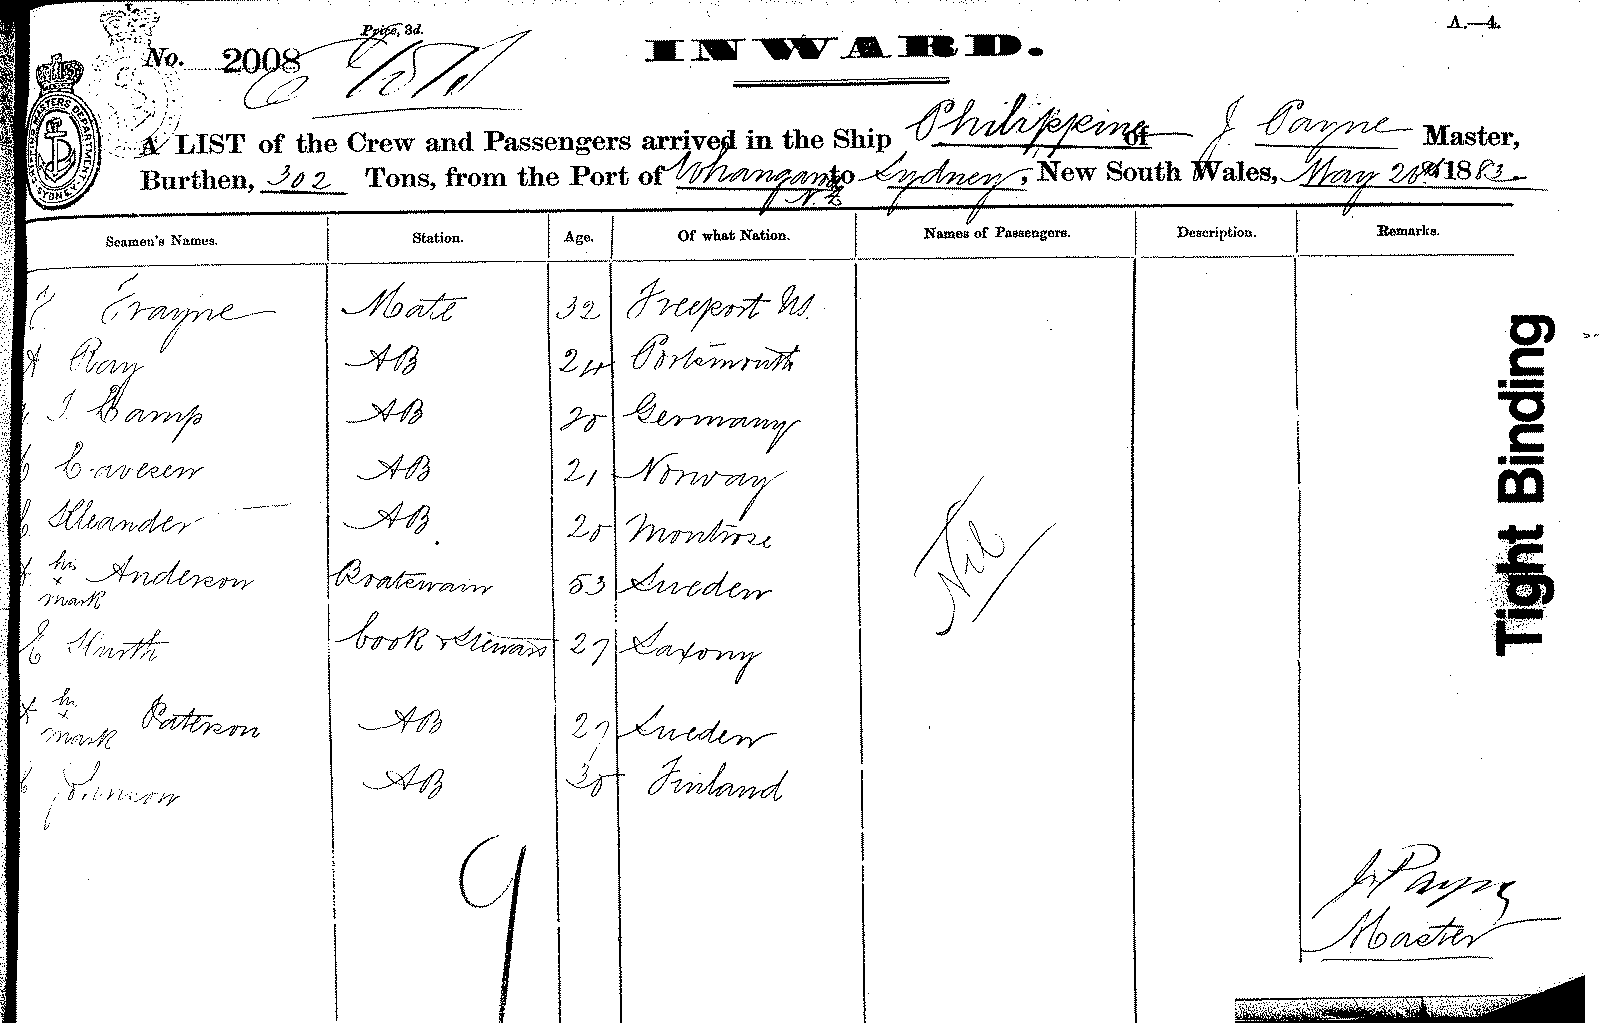 Price, 3d.
A.—4.
No. 2008
INWARD.
A LIST of the Crew and Passengers arrived in the Ship Philippine of J Payne Master,
Burthen, 302 Tons, from the Port of Whangarei N.Z to Sydney, New South Wales, May 20th 1883.
Seamen's Names. Station. Age. Of what Nation. Names of Passengers. Description. Remarks.
Trayne Mate 32 Freeport US.
A Ray AB 24 Portsmouth
J. Camp AB 20 Germany
AB 21 Norway
AB 20 Montrose
his x mark Anderson Boatswain 53 Sweden
E Hurth Cook & Steward 27 Saxony
his x mark Paterson AB 27 Sweden
Johnson AB 30 Finland
Nil
9
J Payne
Master
Tight Binding